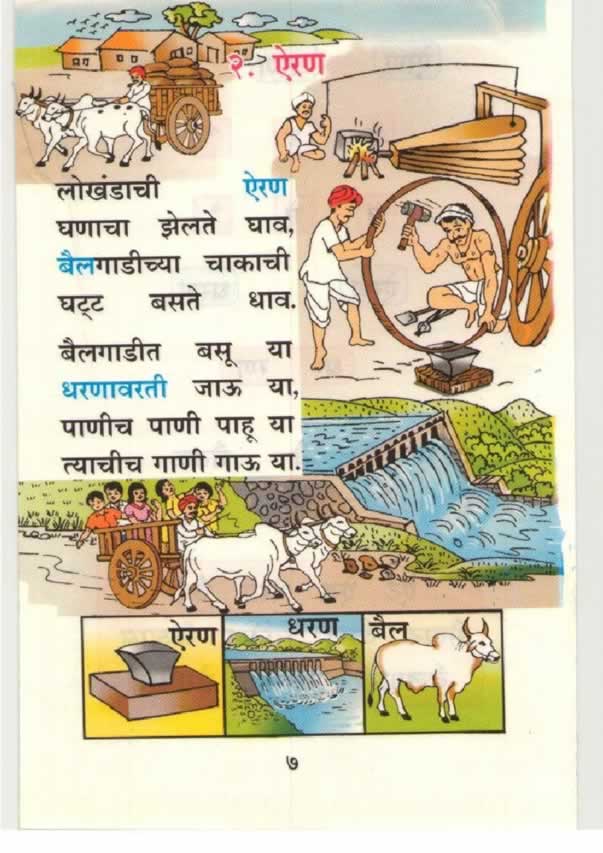 २. ऐरण
लोखंडाची ऐरण
घणाचा झेलते घाव,
बैलगाडीच्या चाकाची
घट्ट बसते धाव.
बैलगाडीत बसू या
धरणावरती जाऊ या,
पाणीच पाणी पाहू या
त्याचीच गाणी गाऊ या.
ऐरण
धरण
बैल
७